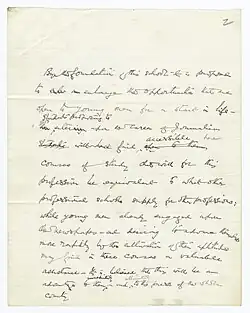 2
By the foundation of this school it is proposed
to also enlarge the opportunities that are
open to young men for a start in life —
Students proposing to
enter upon the career of Journalism
will find, accessible
courses of study devised for this
profession be equivalent to what other
professional schools supply for other professions;
while young men already engaged upon
the newspapers and desiring to advance
more rapidly by the cultivation of their aptitudes
may find in these courses a valuable
assistance — it is believed that they will be an
advantage to them and to the press of the whole
country.